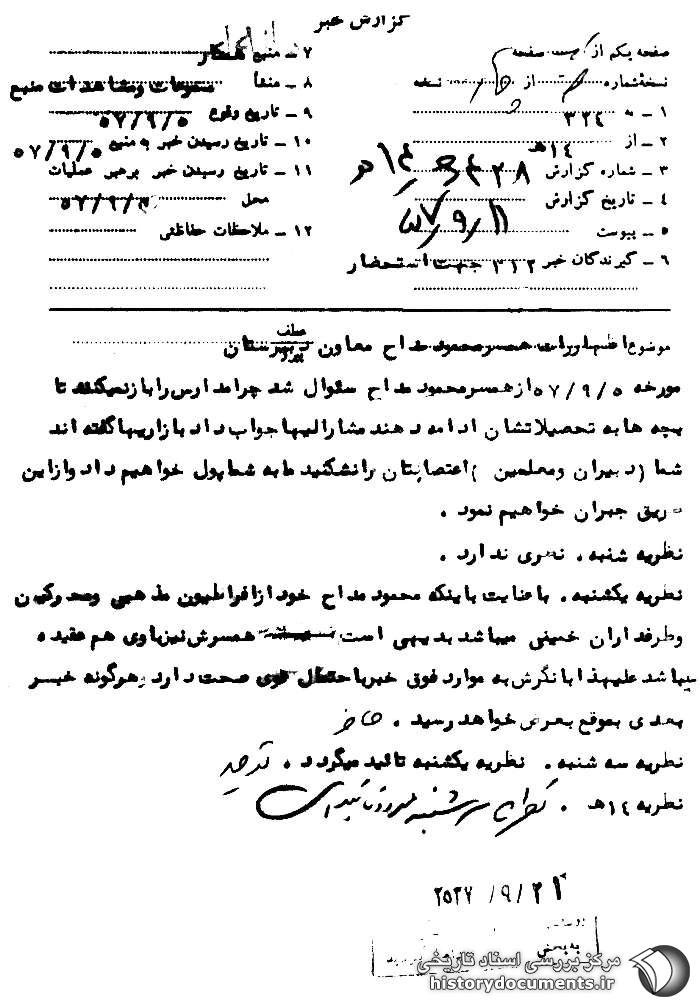 گزارش خبر
صفحه یکم از صفحه
نسخه شماره از نسخه
۱ ـ به ۳۲٤
۲ ـ از ۱٤هـ
۳ ـ شماره گزارش
٤ ـ تاریخ گزارش ۵۷/۹/۱۱
۵ ـ پیوست
۶ ـ گیرندگان خبر ۳۱۲ جهت استحضار
۷ ـ منبع همکار
۸ ـ منشأ مسموعات ومشاهدات منبع
۹ ـ تاریخ وقوع ۵۷/۹/۵
۱۰ ـ تاریخ رسیدن خبر به منبع ۵۷/۹/۵
۱۱ ـ تاریخ رسیدن خبر برهبر عملیات
محل ۵۷/۹/
۱۲ ـ ملاحظات حفاظتی
موضوع اظهارات همسرمحمود مداح معاون دبیرستان
عطف
پیرو
مورخه ۵۷/۹/۵ ازهمسرمحمود مداح سئوال شد چرامدارس رابازنمیکنند تا
بچه ها به تحصیلاتشان ادامه دهند مشارالیها جواب داد بازاریها گفته اند
شما (دبیران ومعلمین ) اعتصابتان رانشکنید مابه شماپول خواهیم داد وازاین
طریق جبران خواهیم نمود .
نظریه شنبه . نظری ندارد .
نظریه یکشنبه . باعنایت باینکه محمود مداح خود ازافراطیون مذهبی ومحرکین
وطرفداران خمینی میباشد بدیهی است همسرش نیزباوی هم عقیده
میباشد علیهذا بانگرش به موارد فوق خبرباحتمال قوی صحت دارد وهرگونه خبر
بعدی بموقع بعرض خواهد رسید .
نظریه سه شنبه . نظریه یکشنبه تائید میگردد .
نظریه ۱٤هـ . نظریه سه شنبه مورد تائید است
۲۵۳۷/۹/۲۱
به بخش
مرکز بررسی اسناد تاریخی
historydocuments.ir